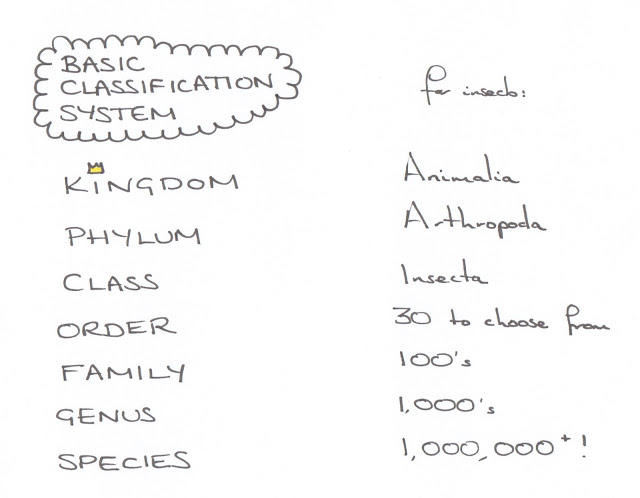 BASIC
CLASSIFICATION
SYSTEM
for insects:
KINGDOM Animalia
PHYLUM Arthropoda
CLASS Insecta
ORDER 30 to choose from
FAMILY 100's
GENUS 1,000's
SPECIES 1,000,000+!